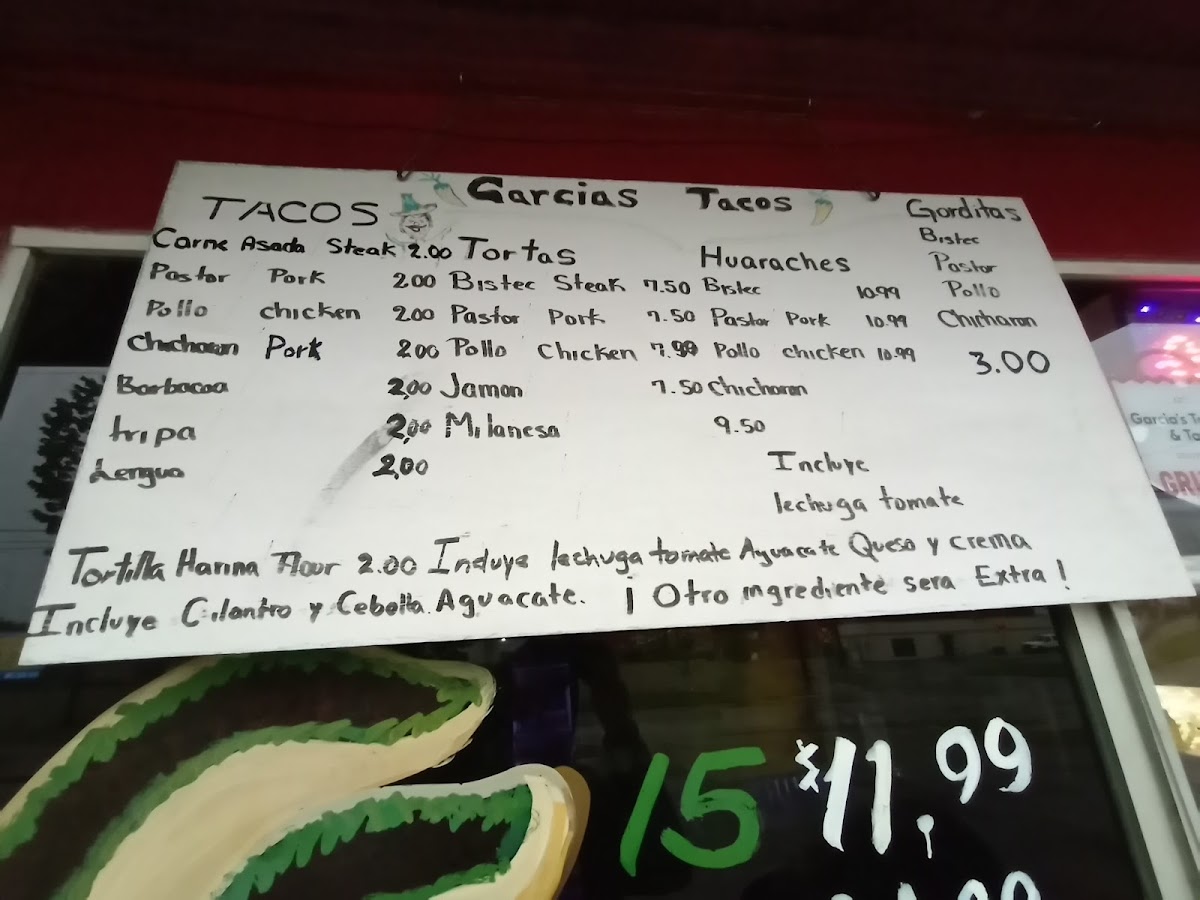 Garcias Tacos
TACOS
Carne Asada Steak 2.00
Pastor Pork 2.00
Pollo chicken 2.00
Chicharon Pork 2.00
Barbacoa 2,00
tripa 2,00
Lengua 2,00
Tortas
Bistec Steak 7.50
Pastor Pork 7.50
Pollo Chicken 7.99
Jamon 7.50
Milanesa
Huaraches
Bistec 10.99
Pastor Pork 10.99
Pollo chicken 10.99
Chicharon
9.50
Incluye
lechuga tomate
Gorditas
Bistec
Pastor
Pollo
Chicharon
3.00
Tortilla Harina Floor 2.00 Incluye lechuga tomate Aguacate Queso y crema
Incluye Cilantro y Cebolla. Aguacate. ¡ Otro ingrediente sera Extra !
Garcia's
&
15 $11,99